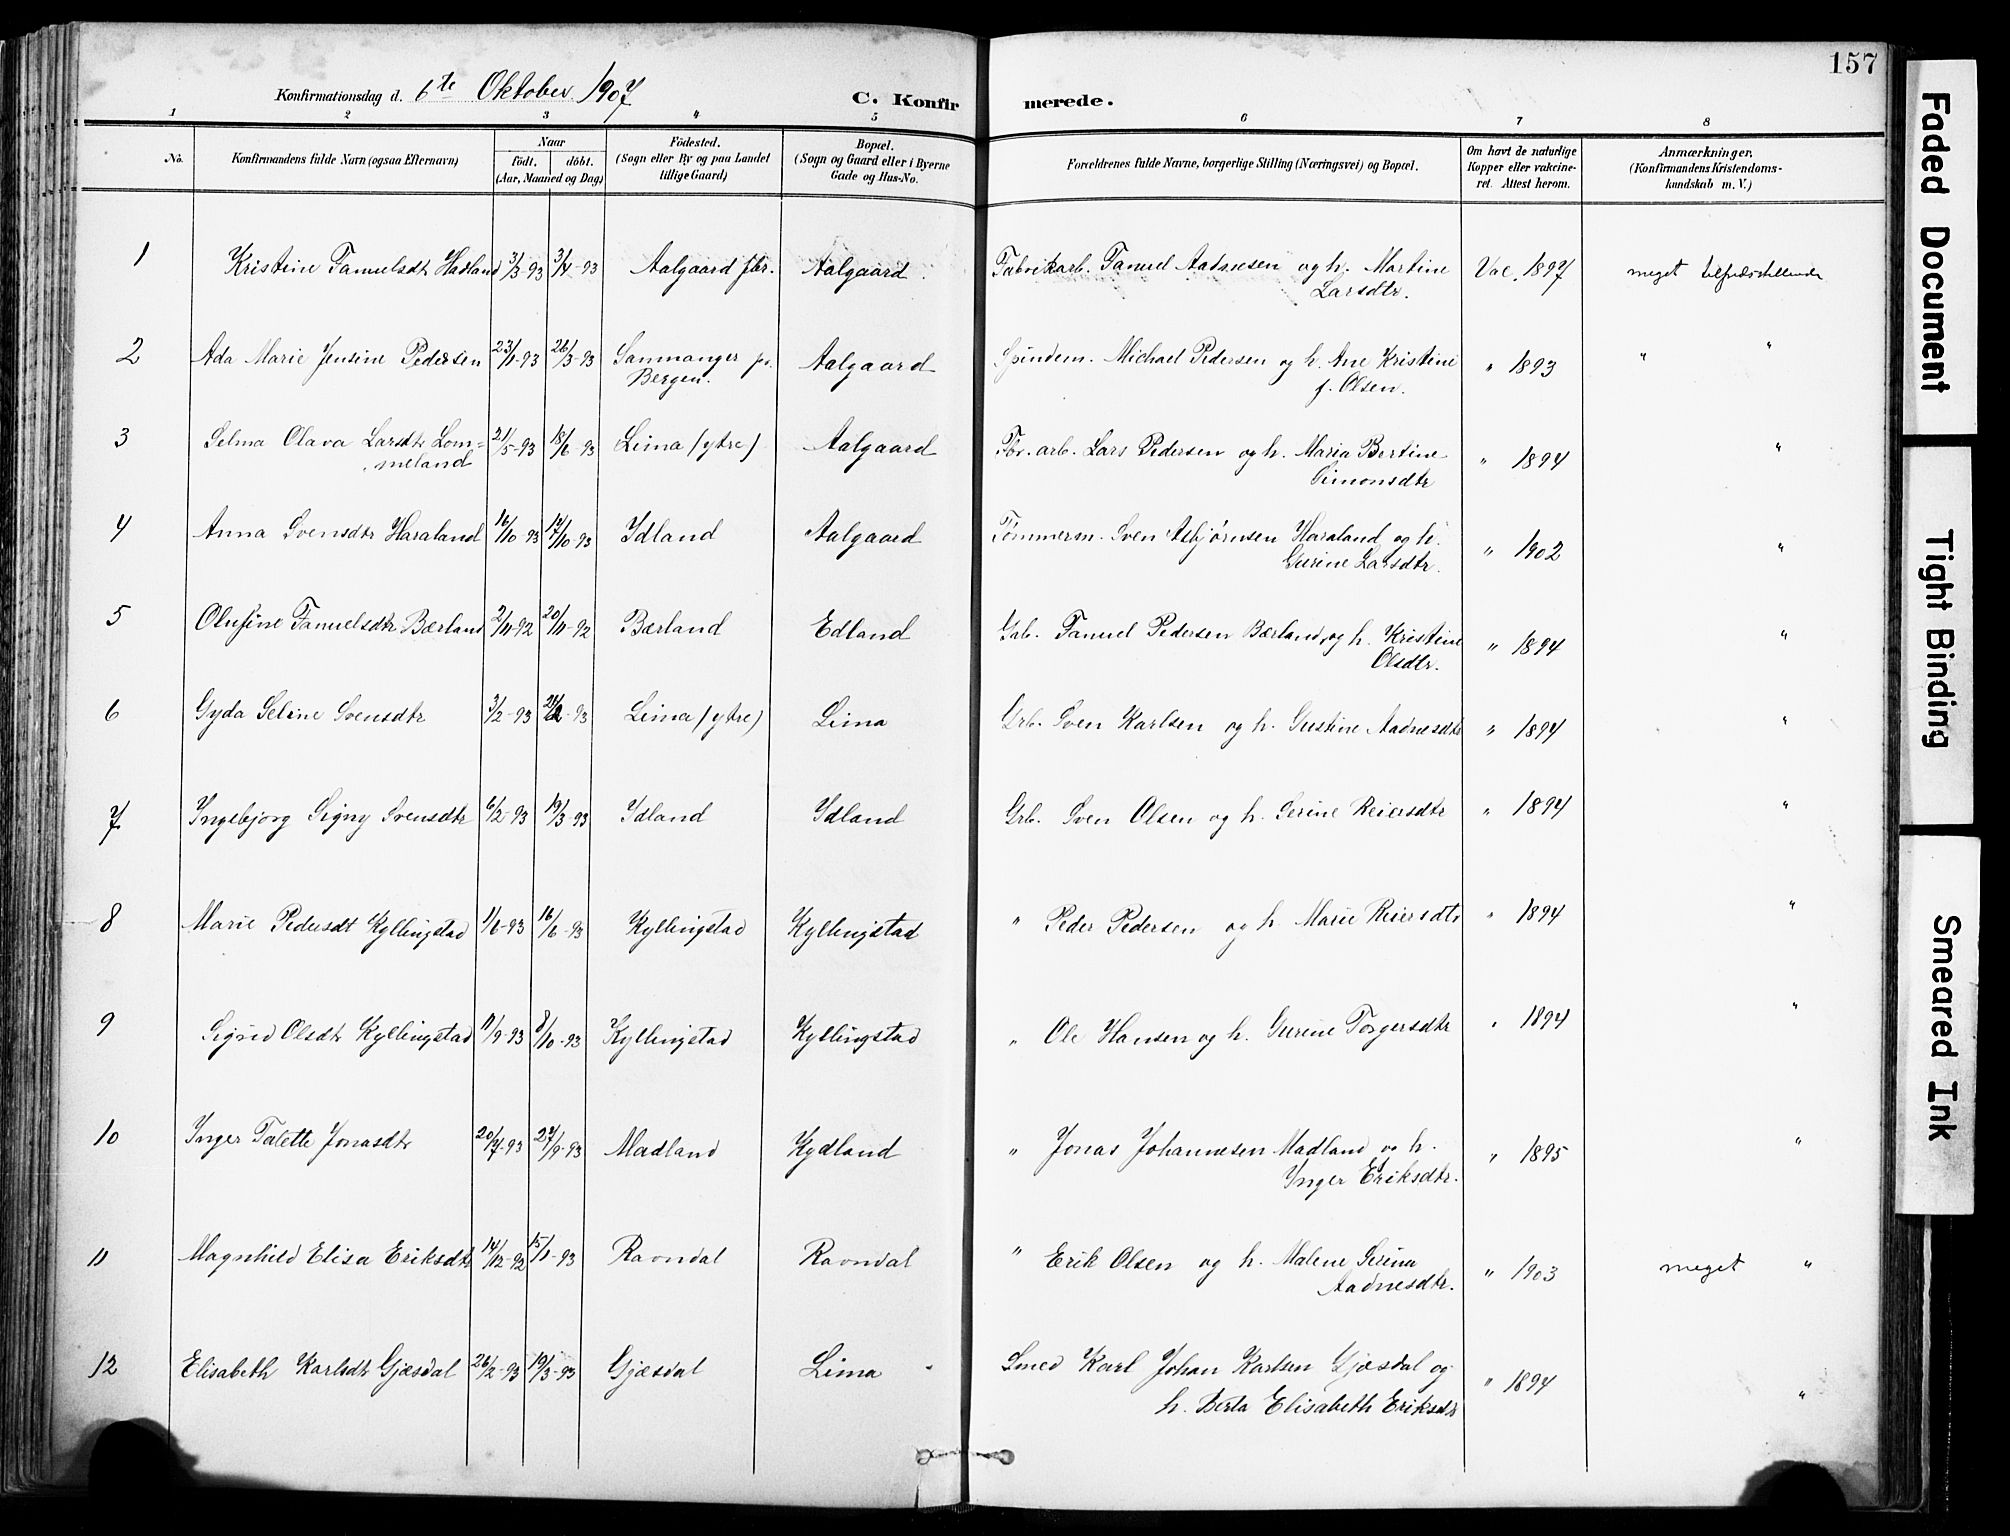 157
Konfirmationsdag d. 6te Oktober 1907 C. Konfirmerede.
1 2 3 4 5 6 7 8
No. Konfirmandens fulde Navn (ogsaa Efternavn) Naar født. døbt. (Aar, Maaned og Dag) Fødested. (Sogn eller By og paa Landet tillige Gaard) Bopæl. (Sogn og Gaard eller i Byerne Gade og Hus-No. Forældrenes fulde Navne, borgerlige Stilling (Næringsvei) og Bopæl. Om havt de naturlige Kopper eller vakcineret. Attest herom. Anmærkninger. (Konfirmandens Kristendomskundskab m. V.)
1 Kristine Tanuelsdtr Hadland 3/3-93 3/4-93 Aalgaard fbr. Aalgaard. Fabrikarb. Tanuel Aadnesen og h. Martine Larsdtr. Vac. 1897 meget tilfredsstillende
2 Ada Marie Jensine Pedersen 23/1-93 26/3-93 Sammanger pr. Bergen. Aalgaard Spindem. Michael Pedersen og h. Ane Kristine f. Olsen. " 1893 " "
3 Selma Olava Larsdtr Lommeland 21/5-93 18/6-93 Lima (ytre) Aalgaard Fbr. arb. Lars Pedersen og h. Maria Bertine Simonsdtr " 1894 "
4 Anna Svensdtr Haraland 16/10-93 17/10-93 Ydland Aalgaard Tømmerm. Sven Asbjørnsen Haraland og h. Gurine Larsdtr. " 1902 "
5 Olufine Tanuelsdtr Bærland 2/11-92 20/11-92 Bærland Edland Grb. Tanuel Pedersen Bærland og h. Kristine Olsdtr. " 1894 "
6 Gyda Seline Svensdtr 3/2-93 Lima (ytre) Lima Grb. Sven Karlsen og h. Gustine Aadnesdtr " 1894 "
7 Ingebjørg Signy Svensdtr 6/2-93 19/3-93 Ydland Ydland Grb. Sven Olsen og h. Serine Reiersdtr " 1894 "
8 Marie Pedersdt Kyllingstad 1/6-93 16/6-93 Kyllingstad Kyllingstad " Peder Pedersen og h. Marie Reiersdtr " 1894 "
9 Sigrid Olsdtr Kyllingstad 11/9-93 8/10-93 Kyllingstad Kyllingstad " Ole Hansen og h. Gurine Torgersdtr " 1894 "
10 Inger Talette Jonasdtr 20/7-93 27/9-93 Madland Kydland " Jonas Johannesen Madland og h. Inger Eriksdtr. " 1895 "
11 Magnhild Elisa Eriksdtr 14/12-92 15/1-93 Ravndal Ravndal " Erik Olsen og h. Malene Serina Aadnesdtr. " 1903 meget "
12 Elisabeth Karlsdtr Gjæsdal 26/2-93 19/3-93 Gjæsdal Lima Smed Karl Johan Karlsen Gjæsdal og h. Berta Elisabeth Eriksdtr " 1894 "
Faded Document
Tight Binding
Smeared Ink